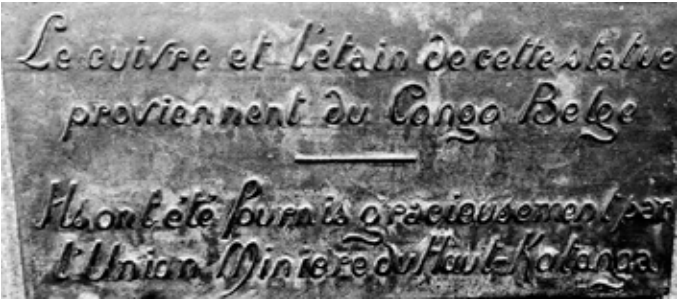 Le cuivre et l'étain de cette statue
proviennent du Congo Belge
Ils ont été fournis gracieusement par
l'Union Minière du Haut-Katanga